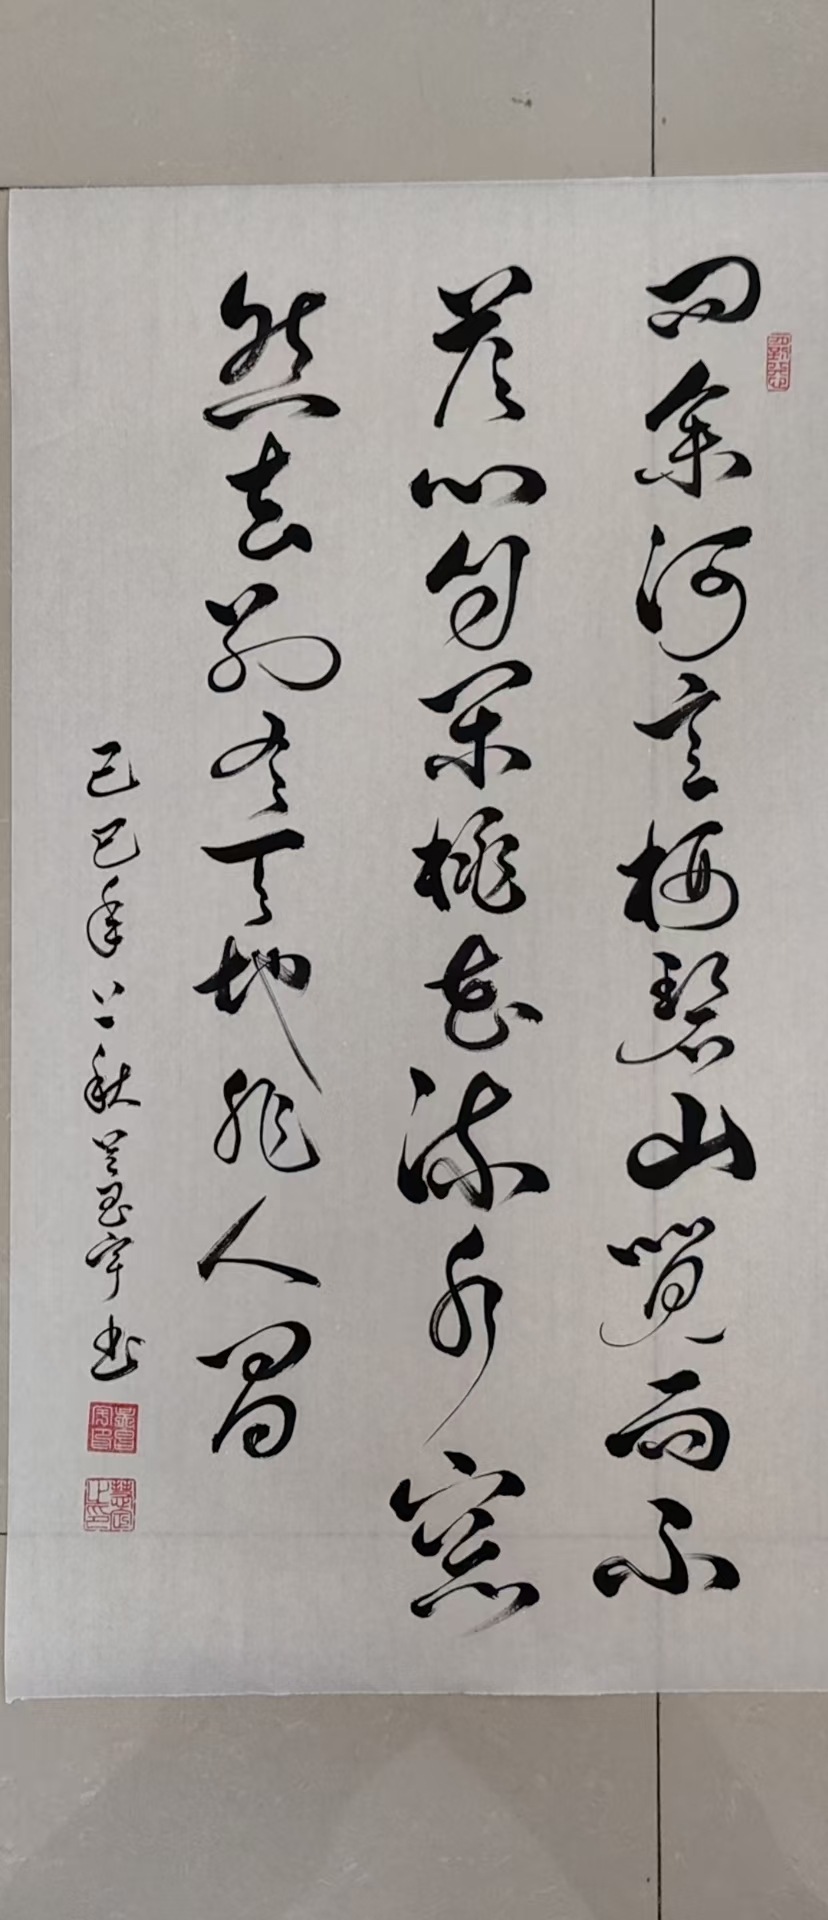 问余何意栖碧山笑而不
答心自闲桃花流水窅
然去别有天地非人间
己巳年兰秋 宇书